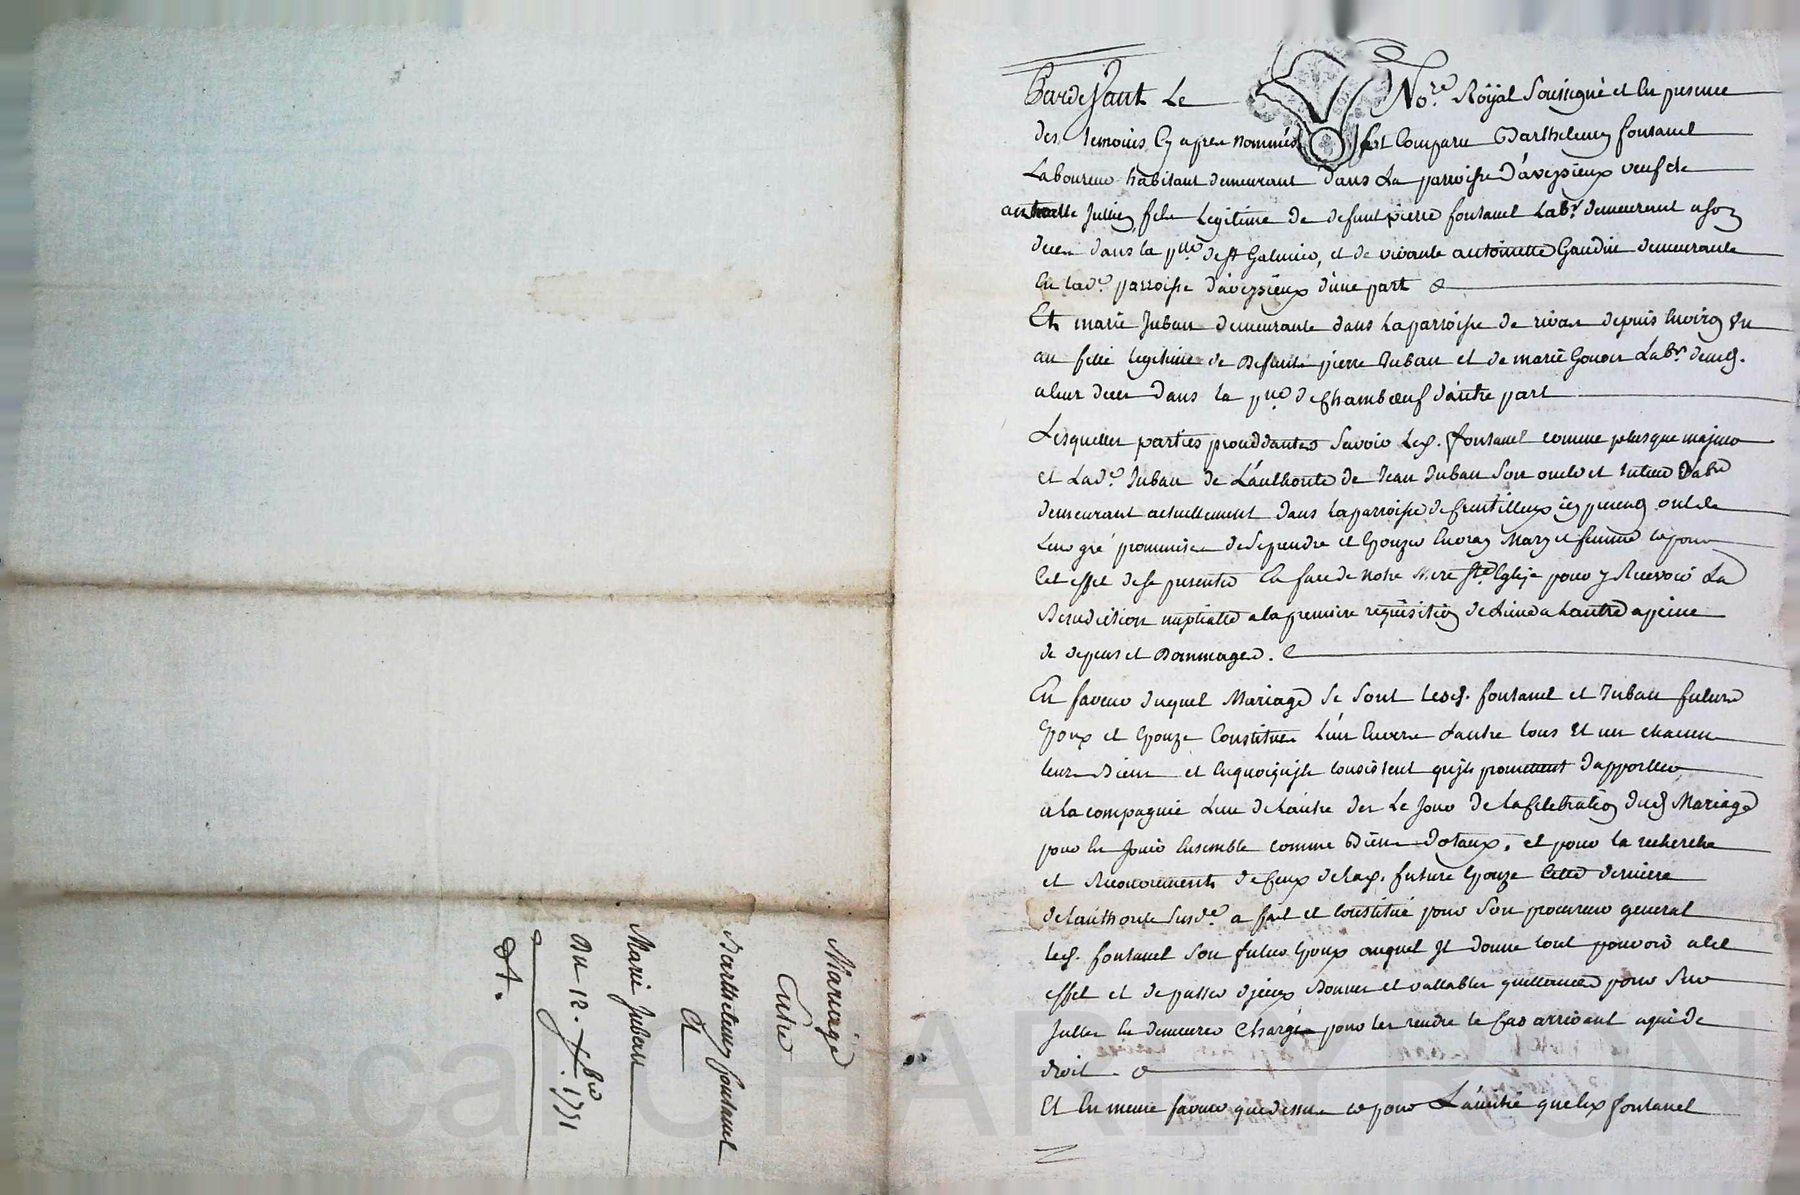 Mariage
Entre
Barthelemy fontanel
Et
Marie Juban
Du 12. fbre 1751
A.
Pardevant Le Nore. Royal Soussigné et En presence
des temoins Cy apres nommés fut Comparu Barthelemy fontanel
Laboureur habitant demeurant dans La parroisse D'aveyzieux veuf de
Jullien, fils Legitime de defunt pierre fontanel Labr. demeurant a son
deces dans la psse de St Galmier, et de vivante antoinette Gaudin demeurante
En lade. parroisse d'aveyzieux d'une part
Et marie Juban demeurante dans La parroisse de rivas depuis Environ Un
an fille legitime de Defunts pierre Juban et de marie Labrs demts.
a leur deces dans la psse de Chambœuf d'autre part
Lesquelles parties procedantes Savoir Led. fontanel comme plusque majeur
et Lade. Juban de L'authorité de Jean Juban Son oncle et tuteur Labr
demeurant actuellement dans La parroisse de icy present ont de
Leur gré promis de Se prendre et Epouzer En vray Mary et femme et pour
Cet effet de se presenter En face de notre Mere Ste Eglise pour y Recevoir La
Benediction nuptialle a la premiere requisition de L'un a Lautre a peine
de depens et Dommages.
En faveur duquel Mariage Se Sont Lesd. fontanel et Juban futurs
Epoux et Epouze Constitués L'un Envers Lautre tous Et un chacun
leurs Biens et En quoy qu'ils consistent qu'ils promettent d'apporter
a la compagnie Lun de Lautre des Le Jour de la Celebration dud Mariage
pour En Jouir Ensemble comme Biens Dotaux, et pour la recherche
et Recouvrements de Ceux de lad. future Epouze Cette derniere
de Lauthorité Susde. a fait et Constitué pour Son procureur general
Led. fontanel Son futur Epoux auquel Il donne tout pouvoir a cet
effet et de passer d'yceux Bonnes et vallables quittances pour Sur
Icelles En demeurer Chargé pour les rendre le Cas arrivant a qui de
droit.
Et En meme faveur que dessus et pour L'amitié que led fontanel
Pascal CHAREYRON